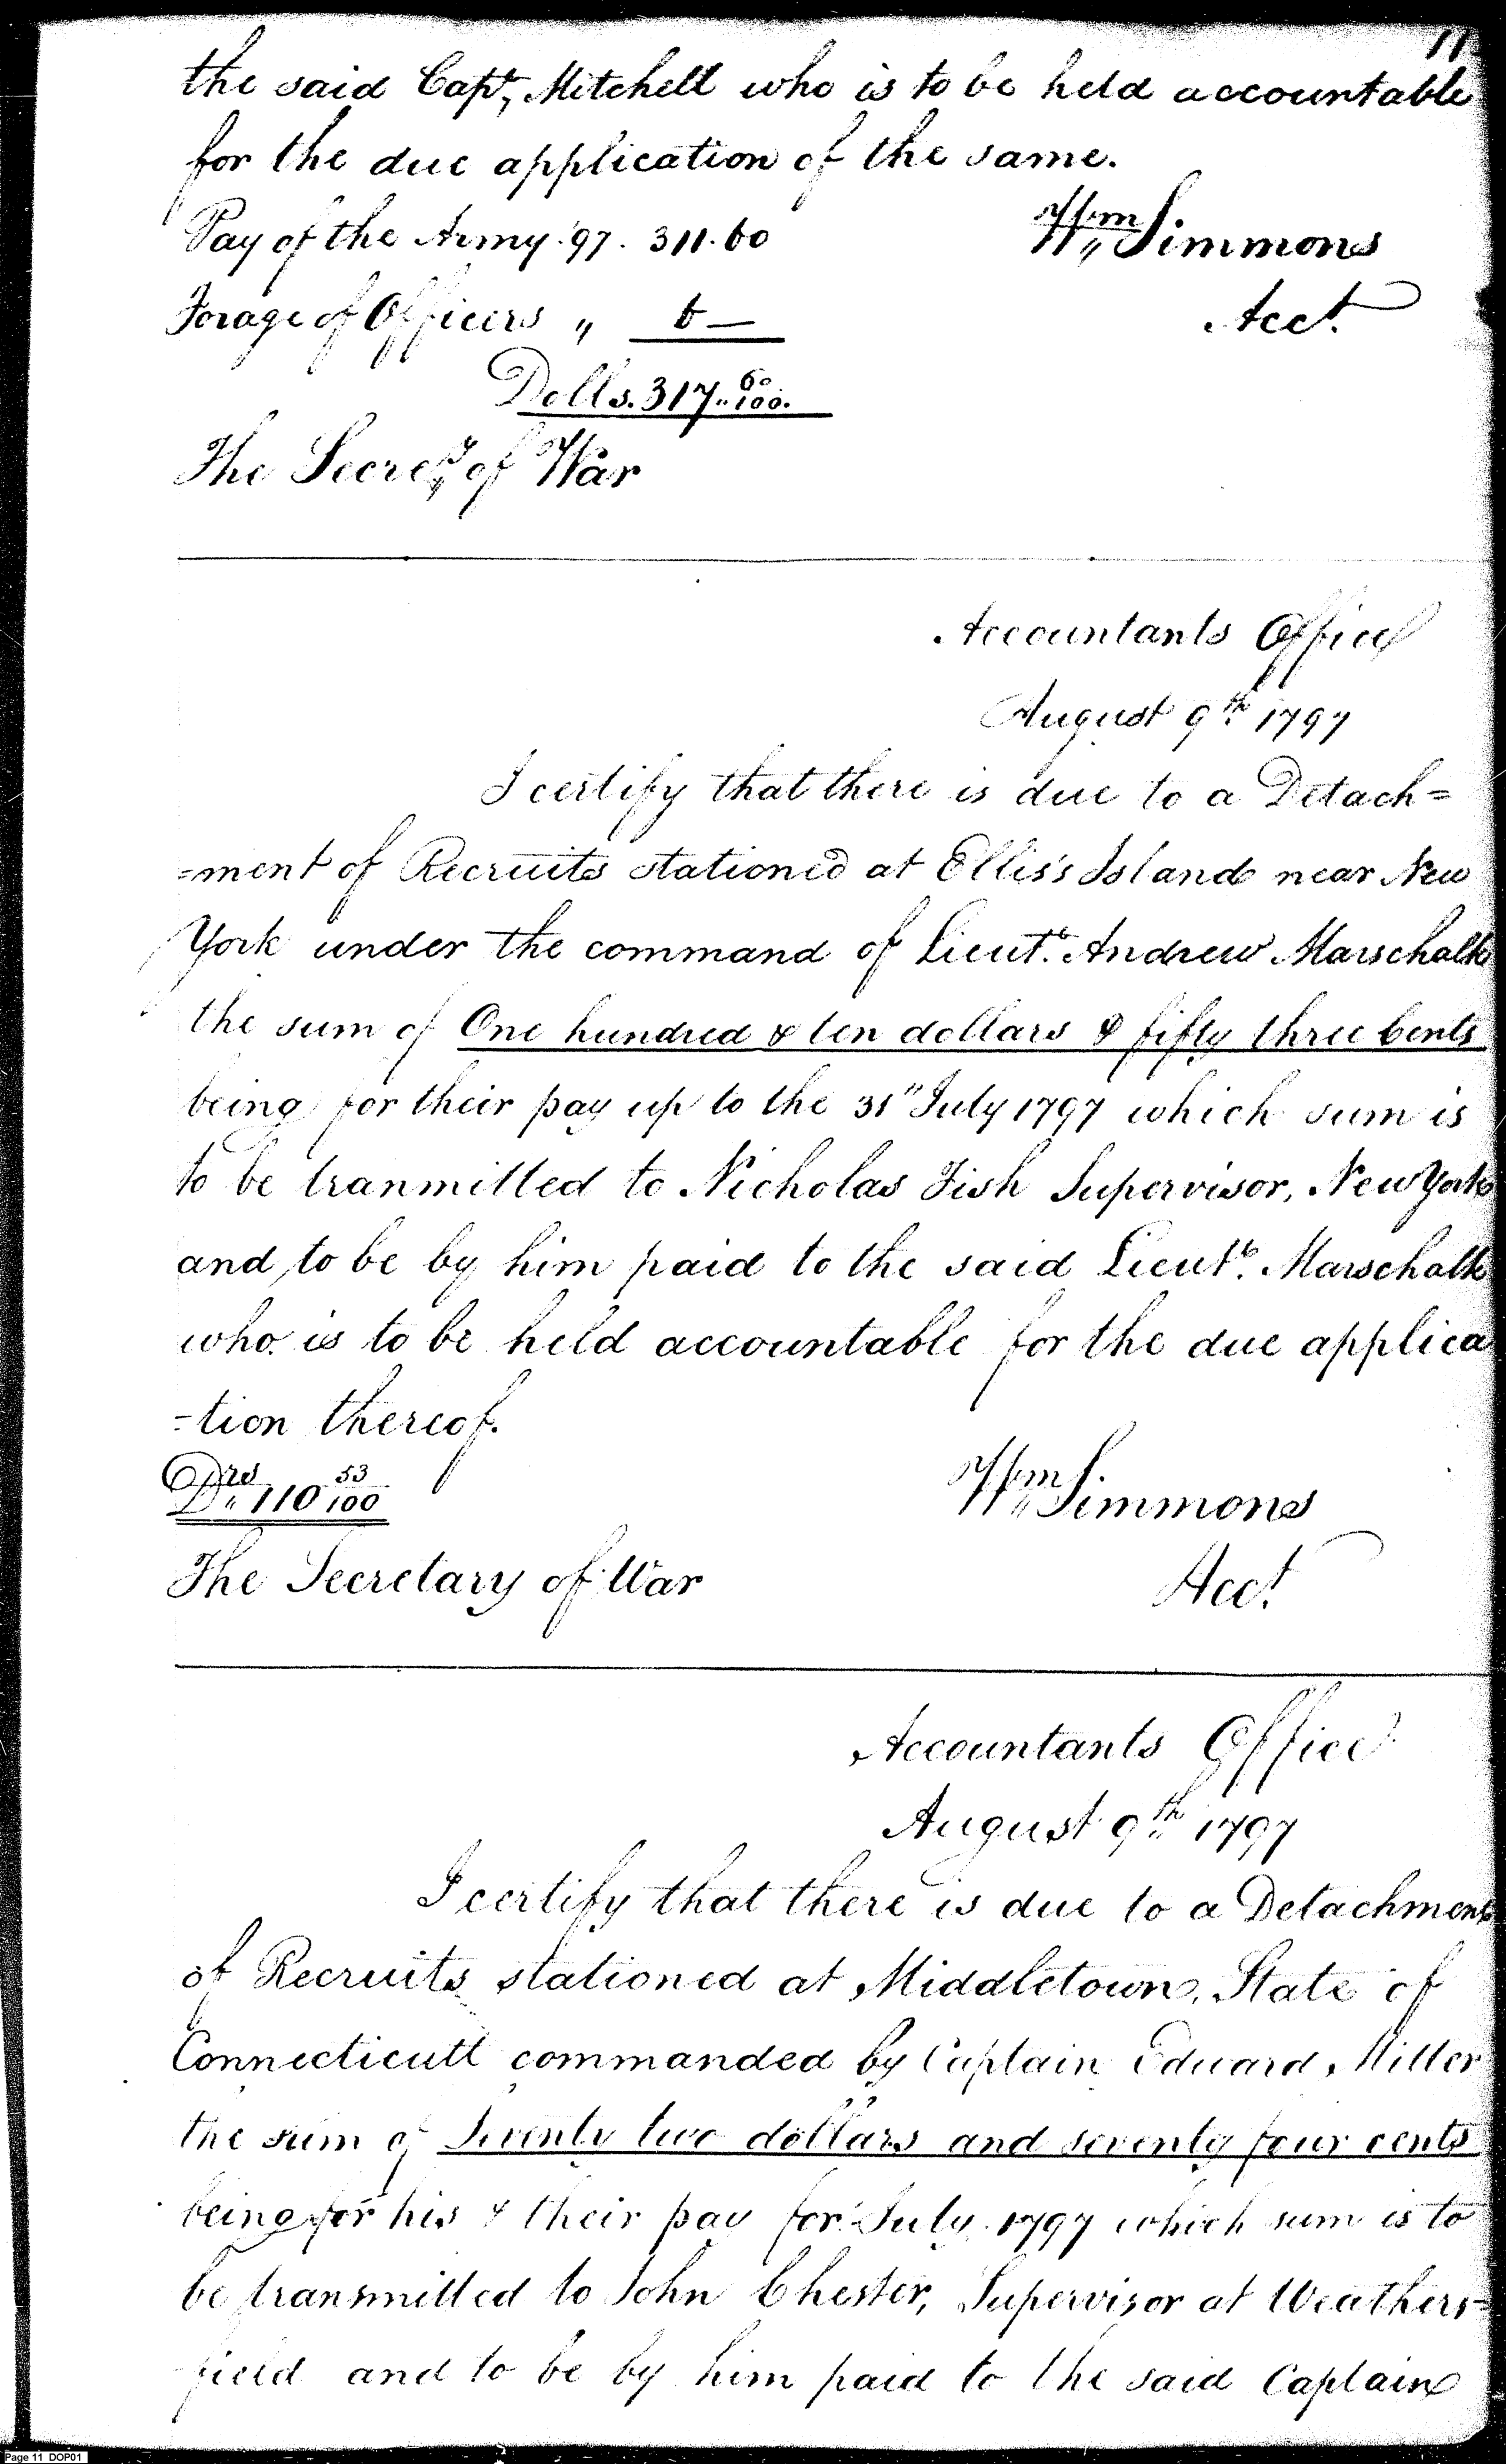 11
the said Capt, Mitchell who is to be held accountable
for the due application of the same.
Pay of the Army '97. 311.60
Wm Simmons
Forage of Officers " 6 —
Acct.
Dolls. 317.. 60/100.
The Secrety of War
Accountants Office
August 9th 1797
I certify that there is due to a Detach=
=ment of Recruits stationed at Ellis's Island near New
York under the command of Lieut. Andrew Marschalk
the sum of One hundred & ten dollars & fifty three Cents
being for their pay up to the 31st July 1797 which sum is
to be tranmitted to Nicholas Fish Supervisor, New York
and to be by him paid to the said Lieut. Marschalk
who is to be held accountable for the due applica
=tion thereof.
Drs 110 53/100
Wm Simmons
The Secretary of War
Acct
Accountants Office
August 9th 1797
I certify that there is due to a Detachment
of Recruits stationed at Middletown, State of
Connecticutt commanded by Captain Edward Miller
the sum of Seventy two dollars and seventy four cents
being for his & their pay for July 1797 which sum is to
be transmitted to John Chester, Supervisor at Weathers=
field and to be by him paid to the said Captain
Page 11 DOP01